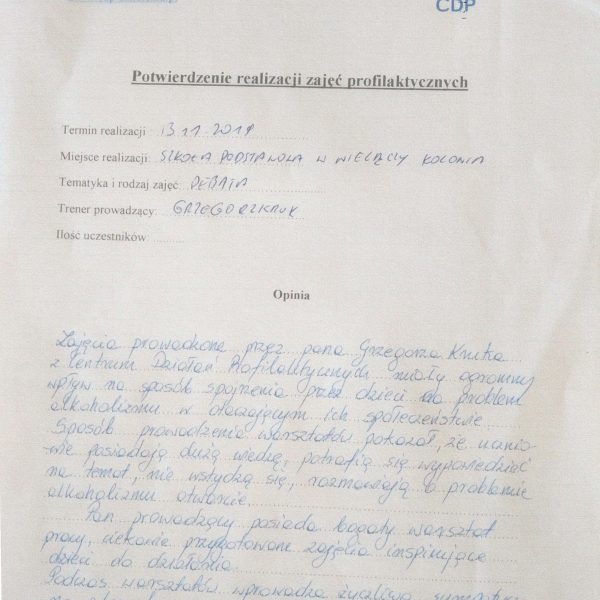 CDP
Potwierdzenie realizacji zajęć profilaktycznych
Termin realizacji 13.11.2019
Miejsce realizacji: SZKOŁA PODSTAWOWA W WIELĄCZY KOLONIA
Tematyka i rodzaj zajęć: DEBATA
Trener prowadzący: GRZEGORZ KRUK
Ilość uczestników:
Opinia
Zajęcia prowadzone przez pana Grzegorza Kruka
z Centrum Działań Profilaktycznych miały ogromny
wpływ na sposób spojrzenia przez dzieci na problem
alkoholizmu w otaczającym ich społeczeństwie.
Sposób prowadzenia warsztatów pokazał, że ucznio-
-wie posiadają dużą wiedzę, potrafią się wypowiedzieć
na temat, nie wstydzą się, rozmawiają o problemie
alkoholizmu otwarcie.
Pan prowadzący posiada bogaty warsztat
pracy, ciekawie przygotowane zajęcia inspirujące
dzieci do działania.
Podczas warsztatów wprowadza życzliwą